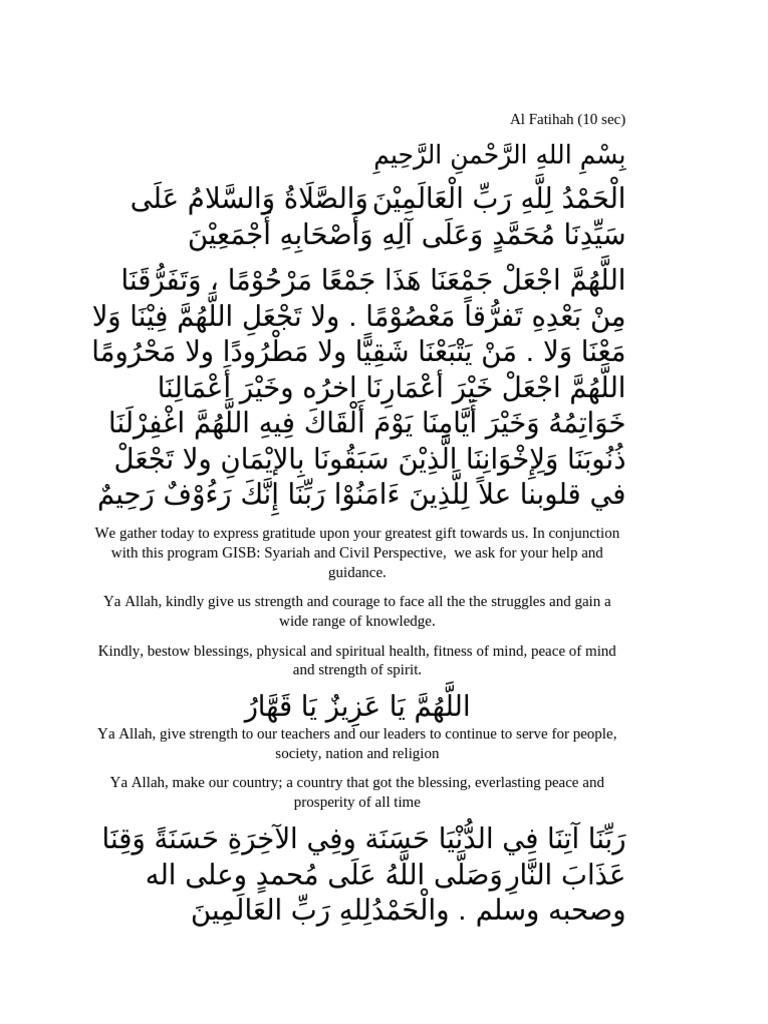 Al Fatihah (10 sec)
بِسْمِ اللهِ الرَّحْمنِ الرَّحِيمِ
الْحَمْدُ لِلَّهِ رَبِّ الْعَالَمِيْنَ وَالصَّلَاةُ وَالسَّلامُ عَلَى
سَيِّدِنَا مُحَمَّدٍ وَعَلَى آلِهِ وَأَصْحَابِهِ أَجْمَعِيْنَ
اللَّهُمَّ اجْعَلْ جَمْعَنَا هَذَا جَمْعًا مَرْحُوْمًا ، وَتَفَرُّقَنَا
مِنْ بَعْدِهِ تَفرُّقاً مَعْصُوْمًا . ولا تَجْعَلِ اللَّهُمَّ فِيْنَا وَلا
مَعْنَا وَلا . مَنْ يَتْبَعْنَا شَقِيًّا ولا مَطْرُودًا ولا مَحْرُومًا
اللَّهُمَّ اجْعَلْ خَيْرَ أعْمَارِنَا اخرُه وخَيْرَ أَعْمَالِنَا
خَوَاتِمُهُ وَخَيْرَ أَيَّامِنَا يَوْمَ أَلْقَاكَ فِيهِ اللَّهُمَّ اغْفِرْلَنَا
ذُنُوبَنَا وَلِإِخْوَانِنَا الَّذِيْنَ سَبَقُونَا بِالإيْمَانِ ولا تَجْعَلْ
في قلوبنا علاً لِلَّذِينَ ءَامَنُوْا رَبِّنَا إِنَّكَ رَءُوْفٌ رَحِيمٌ
We gather today to express gratitude upon your greatest gift towards us. In conjunction
with this program GISB: Syariah and Civil Perspective,  we ask for your help and
guidance.
Ya Allah, kindly give us strength and courage to face all the the struggles and gain a
wide range of knowledge.
Kindly, bestow blessings, physical and spiritual health, fitness of mind, peace of mind
and strength of spirit.
اللَّهُمَّ يَا عَزِيزٌ يَا قَهَّارُ
Ya Allah, give strength to our teachers and our leaders to continue to serve for people,
society, nation and religion
Ya Allah, make our country; a country that got the blessing, everlasting peace and
prosperity of all time
رَبِّنَا آتِنَا فِي الدُّنْيَا حَسَنَة وفِي الآخِرَةِ حَسَنَةً وَقِنَا
عَذَابَ النَّارِ وَصَلَّى اللَّهُ عَلَى مُحمدٍ وعلى اله
وصحبه وسلم . والْحَمْدُلِلهِ رَبِّ العَالَمِينَ